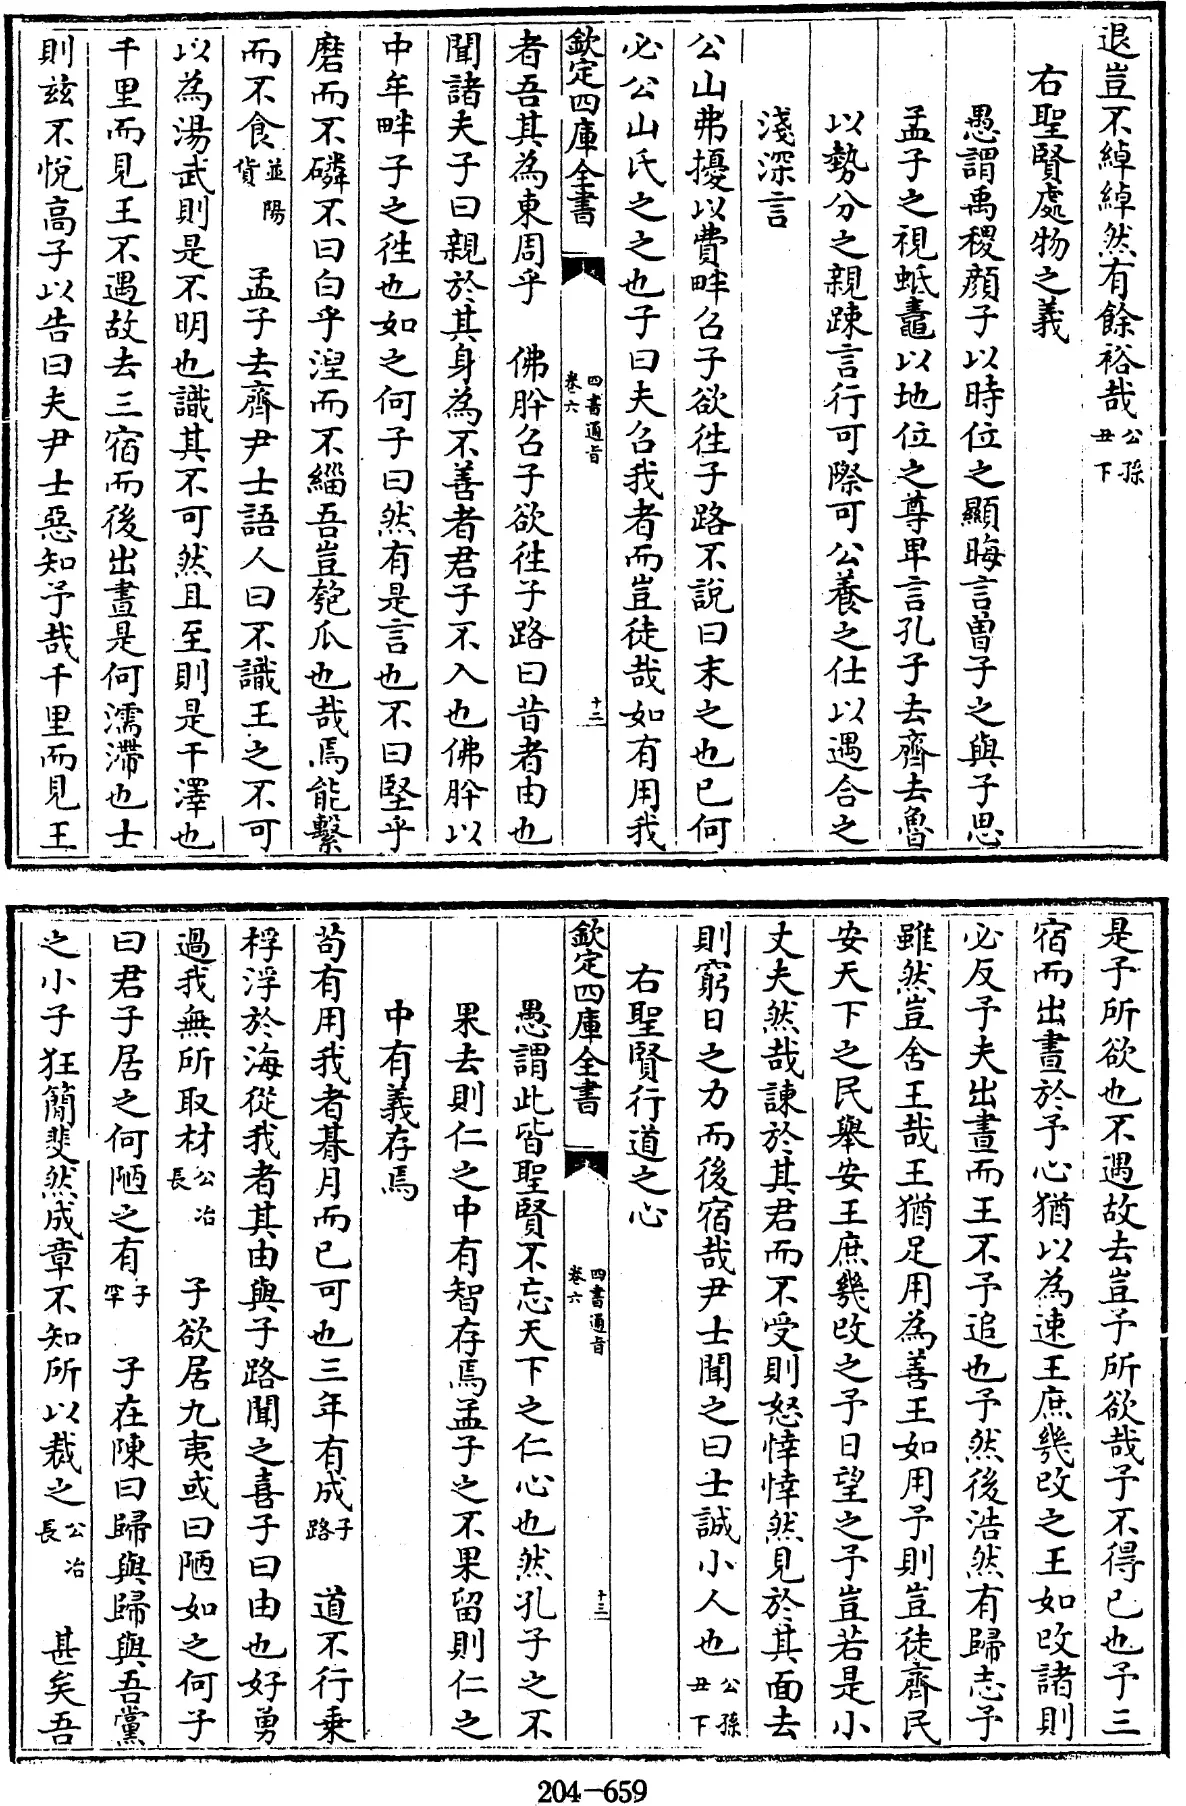 退豈不綽綽然有餘裕哉公孫丑下
右聖賢處物之義
愚謂禹稷顔子以時位之顯晦言曽子之與子思
孟子之視蚳鼃以地位之尊卑言孔子去齊去魯
以勢分之親踈言行可際可公養之仕以遇合之
淺深言
公山弗擾以費畔召子欲徃子路不説曰末之也已何
必公山氏之之也子曰夫召我者而豈徒哉如有用我
欽定四庫全書
四書通旨
卷六
十三
者吾其為東周乎 佛肸召子欲徃子路曰昔者由也
聞諸夫子曰親於其身為不善者君子不入也佛肸以
中牟畔子之徃也如之何子曰然有是言也不曰堅乎
磨而不磷不曰白乎湼而不緇吾豈匏瓜也哉焉能繫
而不食並陽貨 孟子去齊尹士語人曰不識王之不可
以為湯武則是不明也識其不可然且至則是干澤也
千里而見王不遇故去三宿而後出晝是何濡滯也士
則兹不悦高子以告曰夫尹士惡知予哉千里而見王
是予所欲也不遇故去豈予所欲哉予不得已也予三
宿而出晝於予心猶以為速王庶幾改之王如改諸則
必反予夫出晝而王不予追也予然後浩然有歸志予
雖然豈舍王哉王猶足用為善王如用予則豈徒齊民
安天下之民舉安王庶幾改之予日望之予豈若是小
丈夫然哉諫於其君而不受則怒悻悻然見於其面去
則窮日之力而後宿哉尹士聞之曰士誠小人也公孫丑下
右聖賢行道之心
欽定四庫全書
四書通旨
卷六
十三
愚謂此皆聖賢不忘天下之仁心也然孔子之不
果去則仁之中有智存焉孟子之不果留則仁之
中有義存焉
苟有用我者朞月而已可也三年有成子路 道不行乗
桴浮於海從我者其由與子路聞之喜子曰由也好勇
過我無所取材公冶長 子欲居九夷或曰陋如之何子
曰君子居之何陋之有子罕 子在陳曰歸與歸與吾黨
之小子狂簡斐然成章不知所以裁之公冶長 甚矣吾
204-659